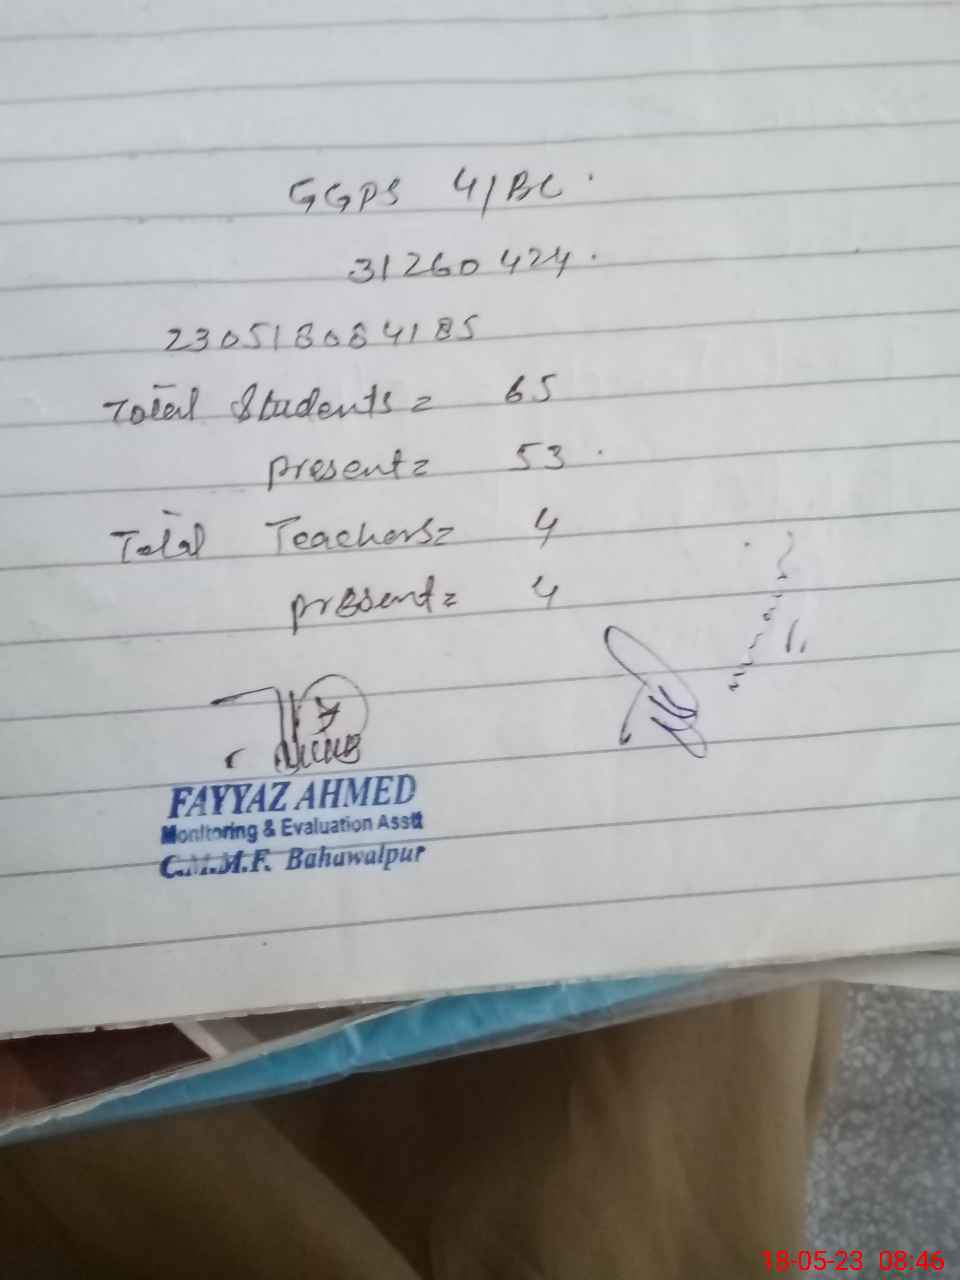 GGPS 4/BC.
31260424.
230518084185
Total Students = 65
present = 53.
Total Teachers = 4
present = 4
FAYYAZ AHMED
Monitoring & Evaluation Asstt
C.M.M.F. Bahawalpur
18-05-23 08:46